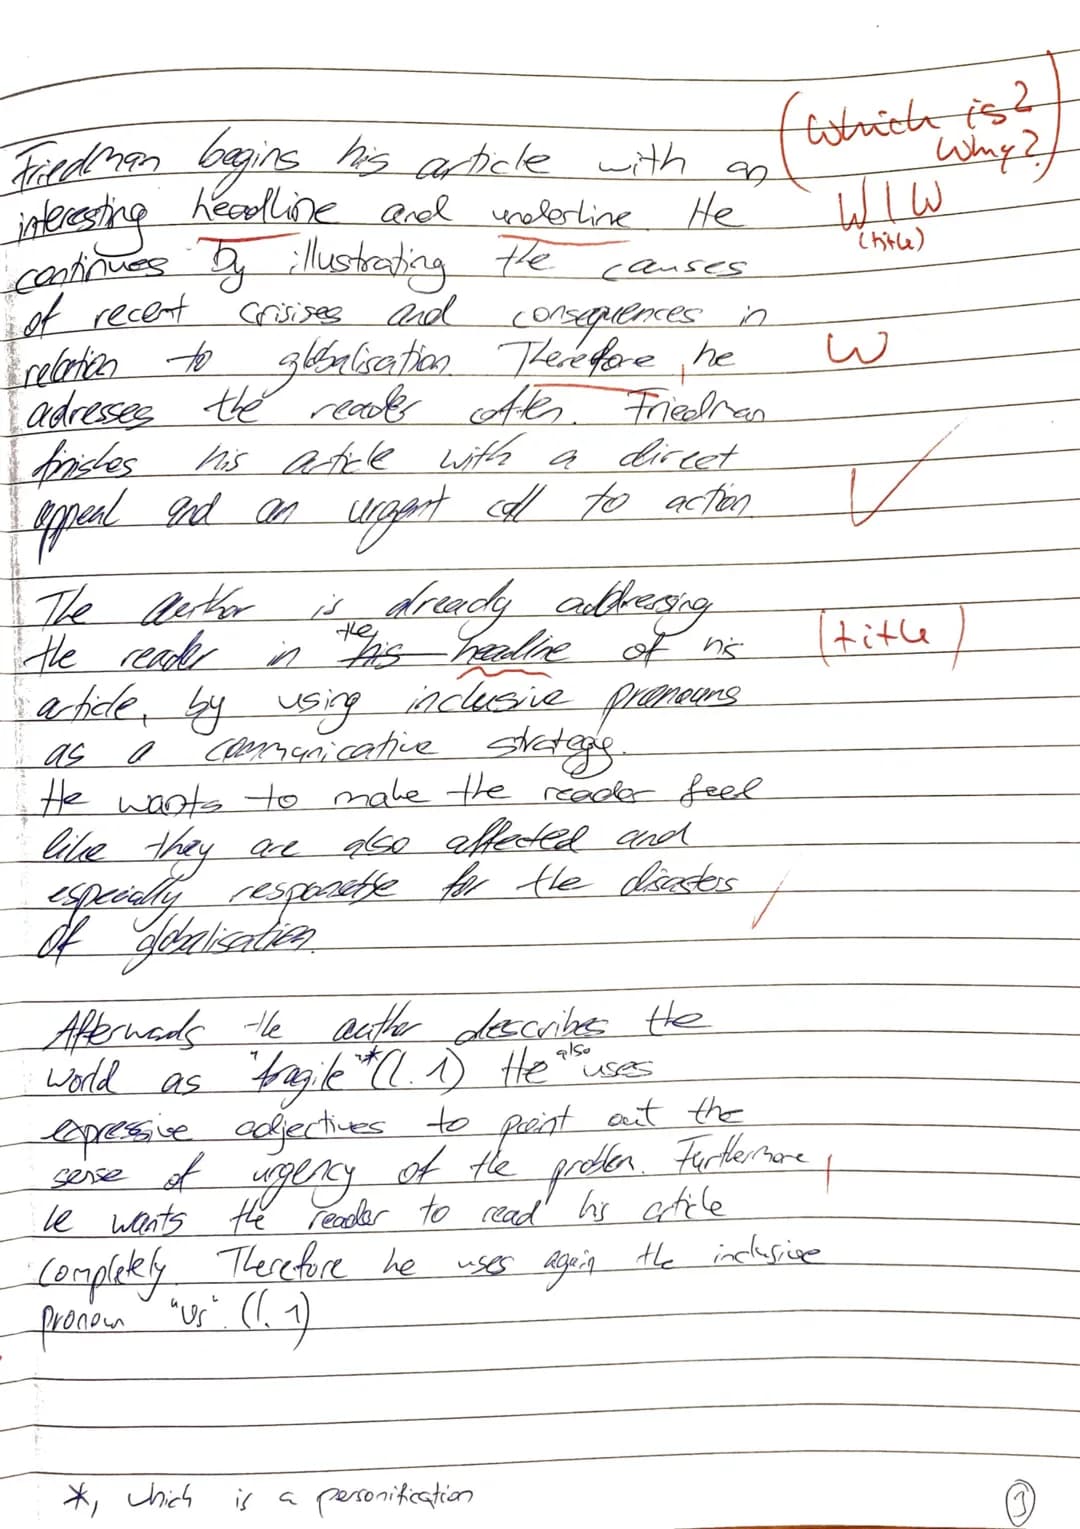 (Which is?
Why?)
Friedman begins his article with an
interesting headline and underline. He
W | W
(title)
continues by illustrating the causes
of recent crisises and consequences in
relation to globalisation. Therefore, he
W
adresses the reader often. Friedman
finishes his article with a direct
appeal and an urgent call to action.
The author is already addressing
the
the reader in his headline of his
(title)
article, by using inclusive pronouns
as a communicative strategy.
He wants to make the reader feel
like they are also affected and
especially for the disasters
of globalisation.
Afterwards the author describes the
also
world as "fragile"* (l. 1) He uses
expressive adjectives to point out the
sense of urgency of the problem. Furthermore,
he wants the reader to read his article
completely. Therefore he uses again the inclusive
pronoun "us". (l. 1)
*, which is a personification
3